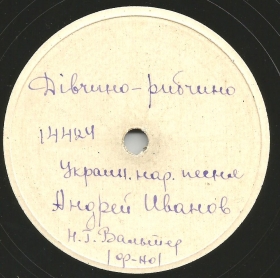 Дівчино-рибчино
14424
Украин. нар. песня
Андрей Иванов
Н. Г. Вальтер
/ф-но/